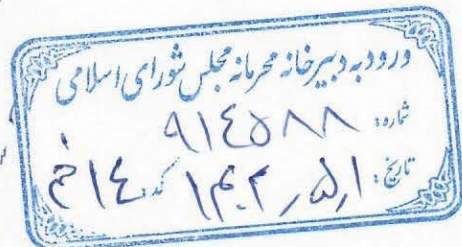 ورود به دبیرخانه محرمانه مجلس شورای اسلامی
شماره: ۹۱۴۵۸۸
تاریخ: ۱۴۰۳٫۵٫۱ کد: ۱۴